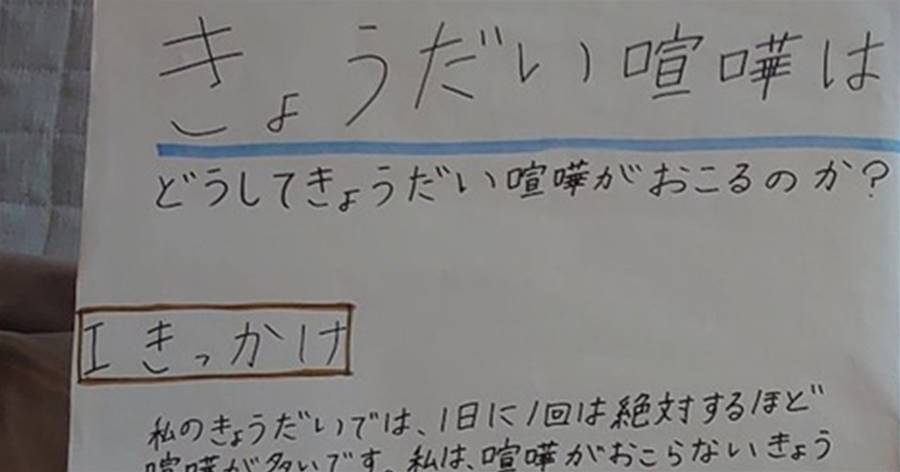 きょうだい喧嘩は
どうしてきょうだい喧嘩がおこるのか?
I きっかけ
私のきょうだいでは、1日に1回は絶対するほど
喧嘩が多いです。私は、喧嘩がおこらないきょう